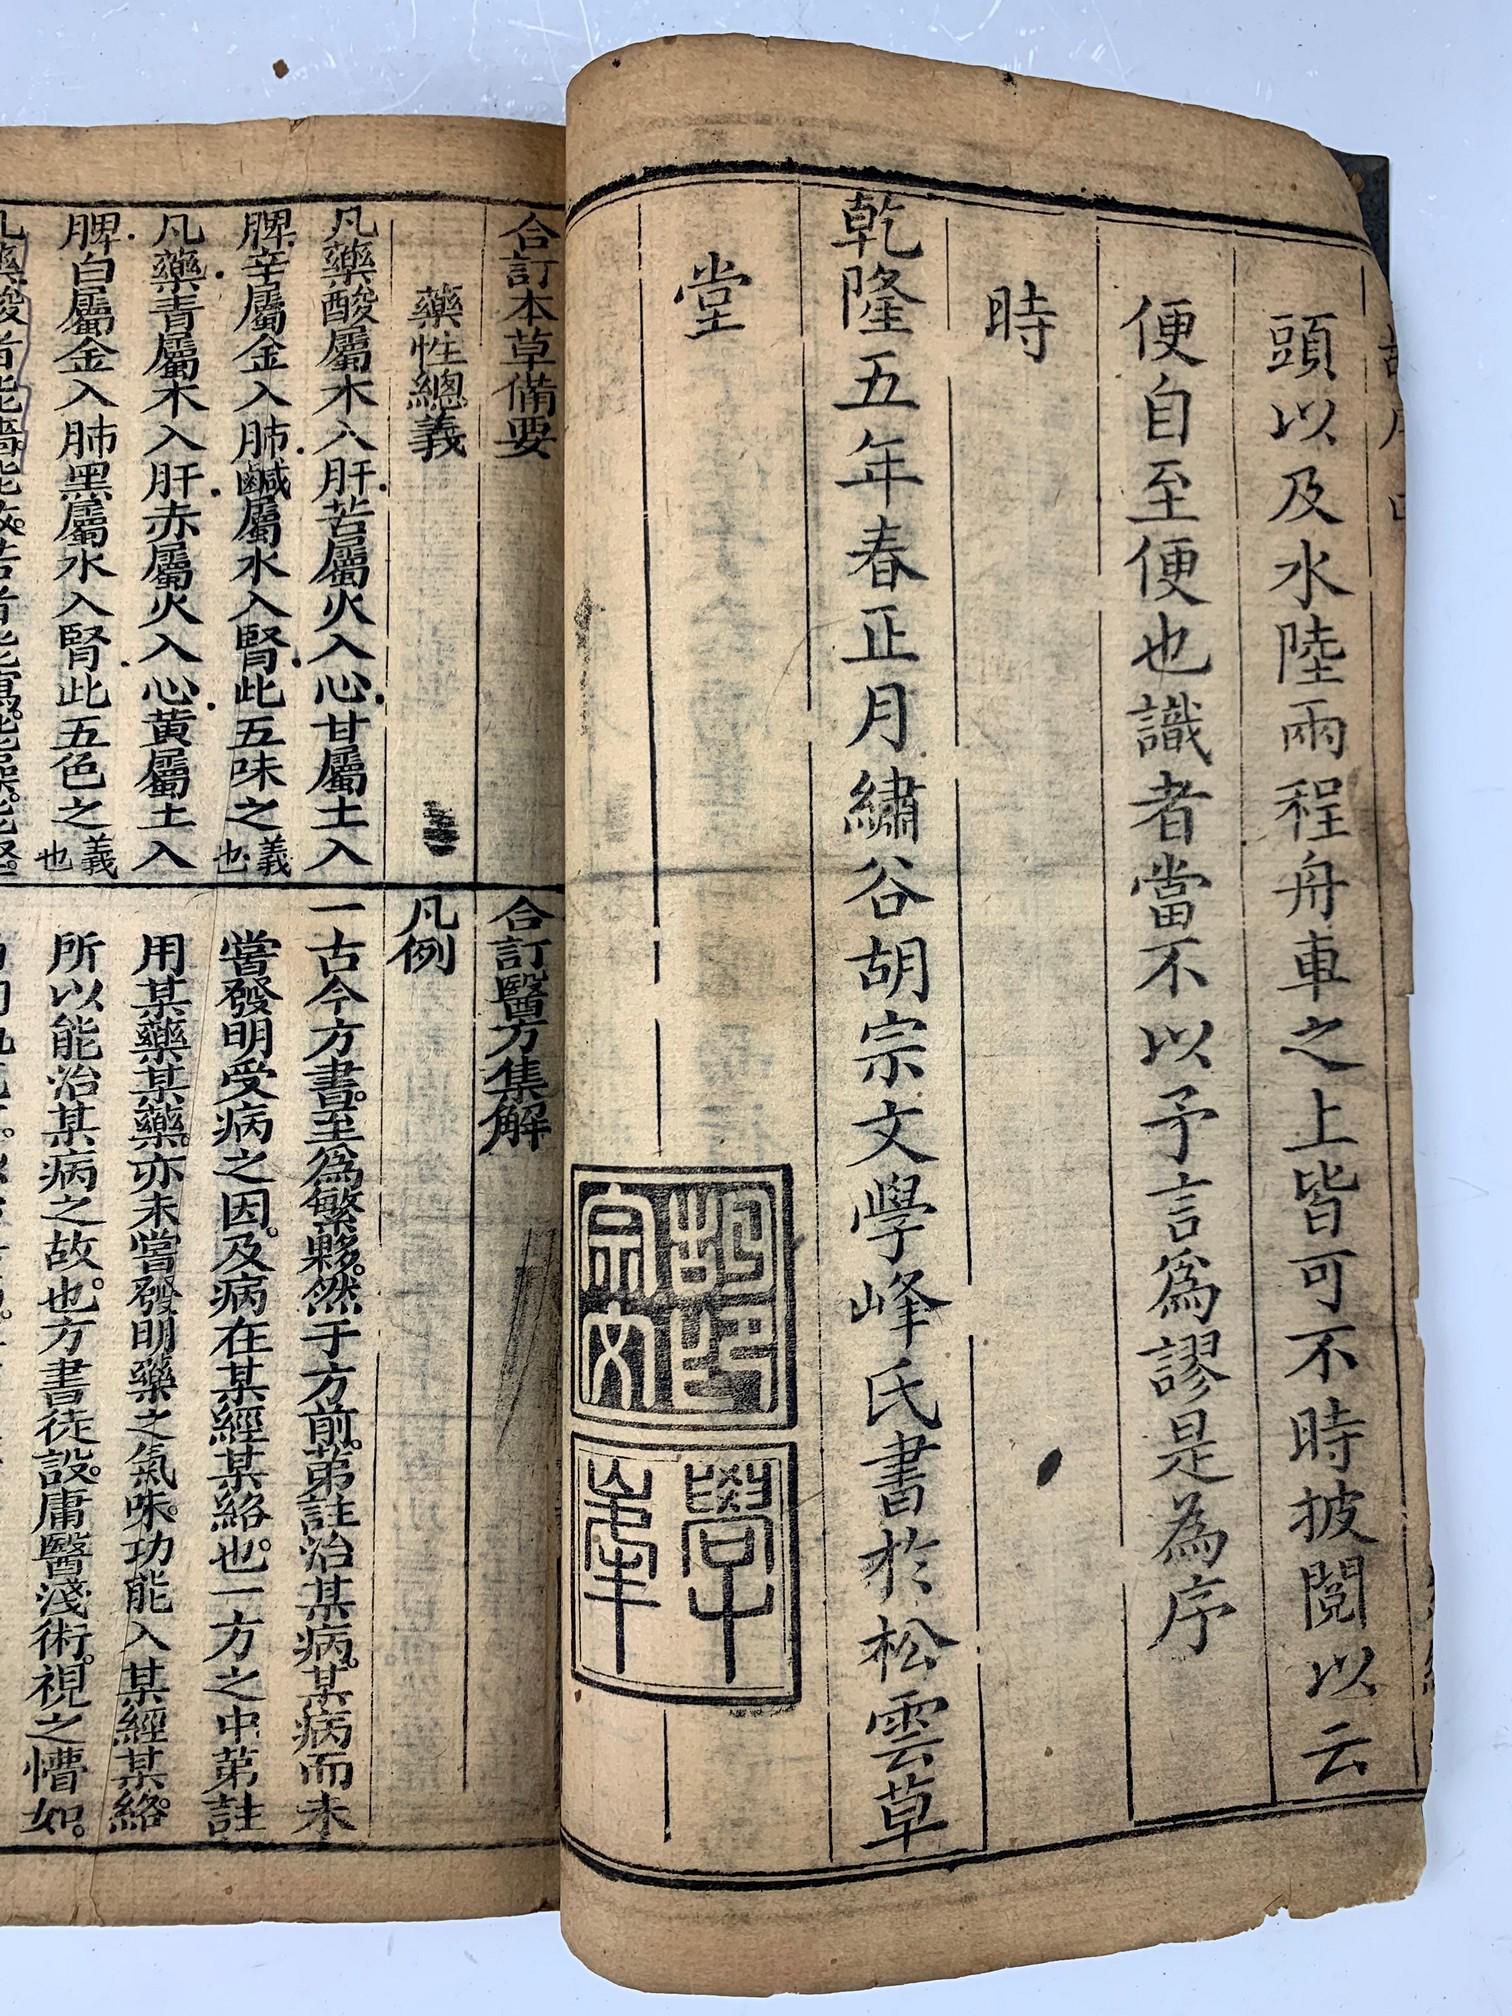 頭以及水陸兩程舟車之上皆可不時披閱以云
便自至便也識者當不以予言爲謬是為序
時
乾隆五年春正月繡谷胡宗文學峰氏書於松雲草
堂
胡印宗文
學峯
合訂本草備要
藥性總義
凡藥酸屬木入肝苦屬火入心甘屬土入
脾辛屬金入肺鹹屬水入腎此五味之義也
凡藥青屬木入肝赤屬火入心黃屬土入
脾白屬金入肺黑屬水入腎此五色之義也
合訂醫方集解
凡例
一古今方書至爲繁夥然于方前苐註治某病某病而未
嘗發明受病之因及病在某經某絡也一方之中苐註
用某藥某藥亦未嘗發明藥之氣味功能入某經某絡
所以能治某病之故也方書徒設庸醫淺術視之懵如